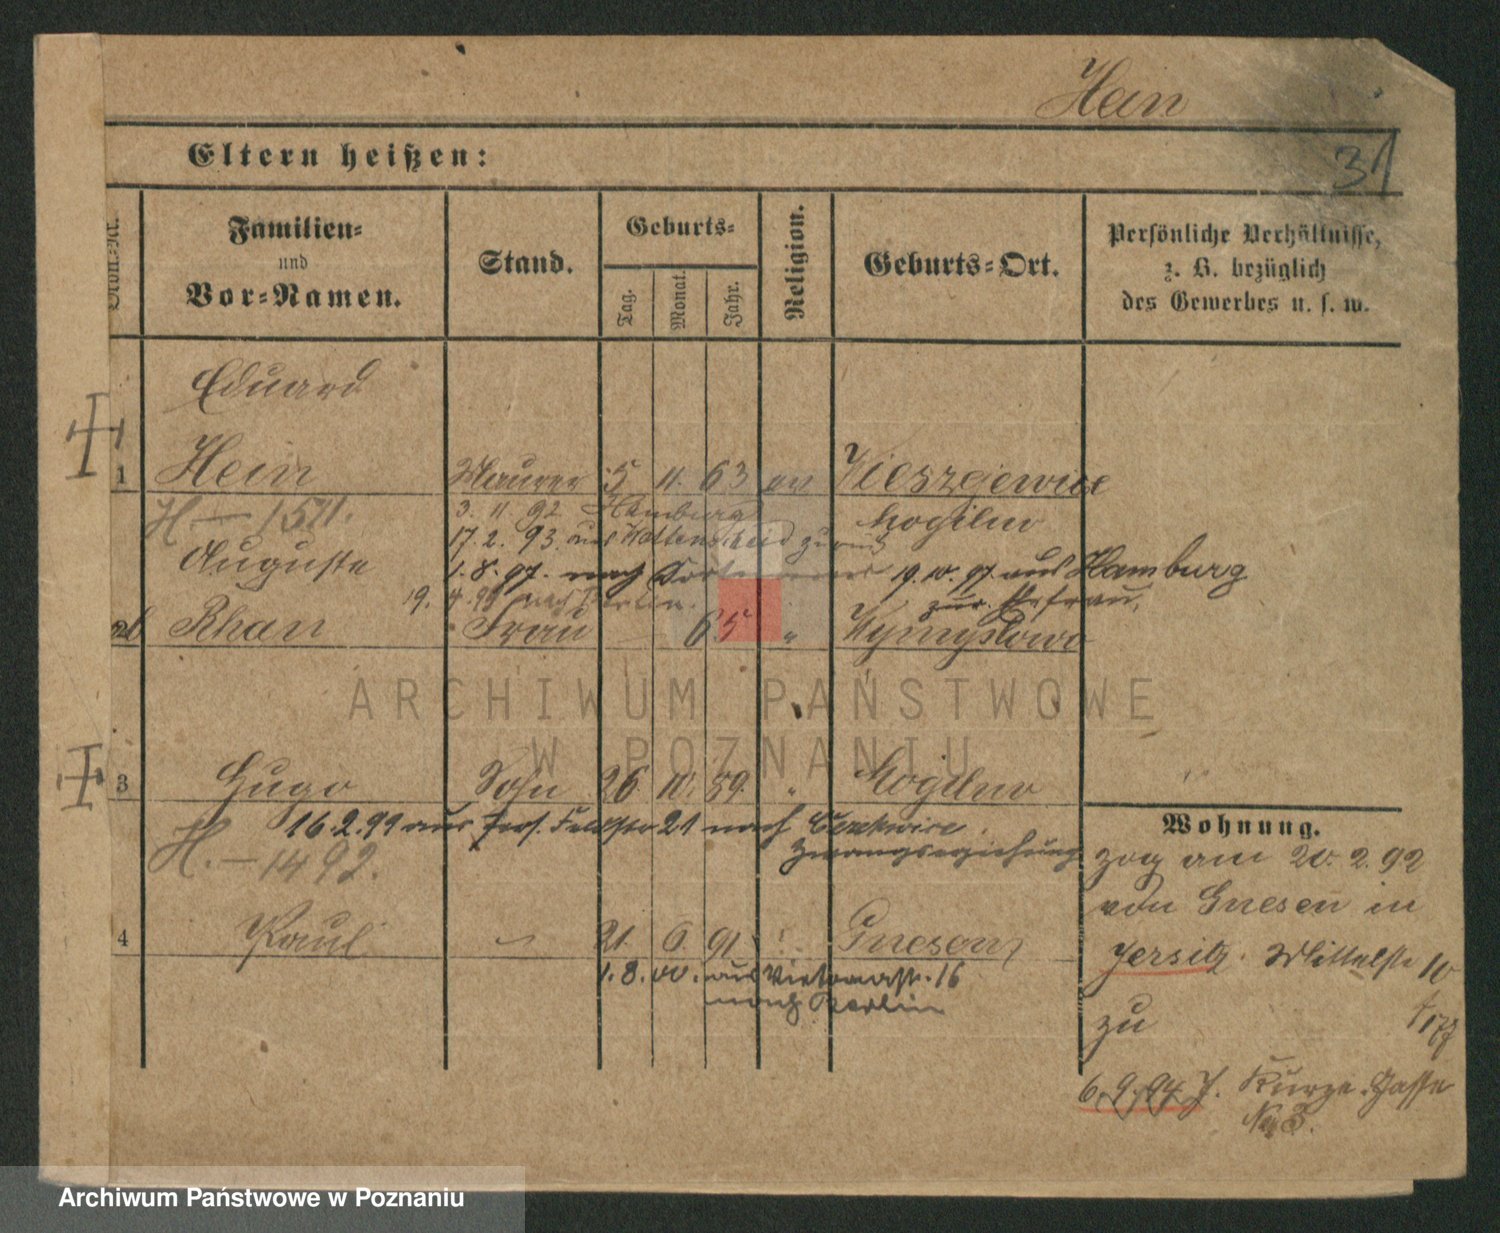 Hein
31
Eltern heißen:
Ordn.-Nr.
Familien-
und
Vor-Namen.
Stand.
Geburts-
Tag.
Monat.
Jahr.
Religion.
Geburts-Ort.
Persönliche Verhältnisse,
z. B. bezüglich
des Gewerbes u. s. w.
Eduard
1 Hein Maurer 5 11. 63 ev Wieszejewice
H — 1511. 3. 11 92 Hamburg Mogilno
17. 2. 93. aus Wattenscheid zurück
Auguste 1. 8. 97. nach 19. 10. 97. aus Hamburg
19. 4. 99 nach Berlin. zur. Ehefrau.
2 Rhan Frau 65 " Wymyslowo
ARCHIWUM PAŃSTWOWE
W POZNANIU
3 Hugo Sohn 26. 10. 89. " Mogilno
16. 2. 99 aus 21 nach
Zwangserziehung
H. — 1492.
4 Paul 21. 6. 91 Gnesen
1. 8. 00. aus Victoriastr. 16
nach Berlin
Wohnung.
zog am 20. 2. 92
von Gnesen in
Jersitz. Mittelstr 10
zu
6. 9. 94 J. Kurze Gasse
No 3.
Archiwum Państwowe w Poznaniu